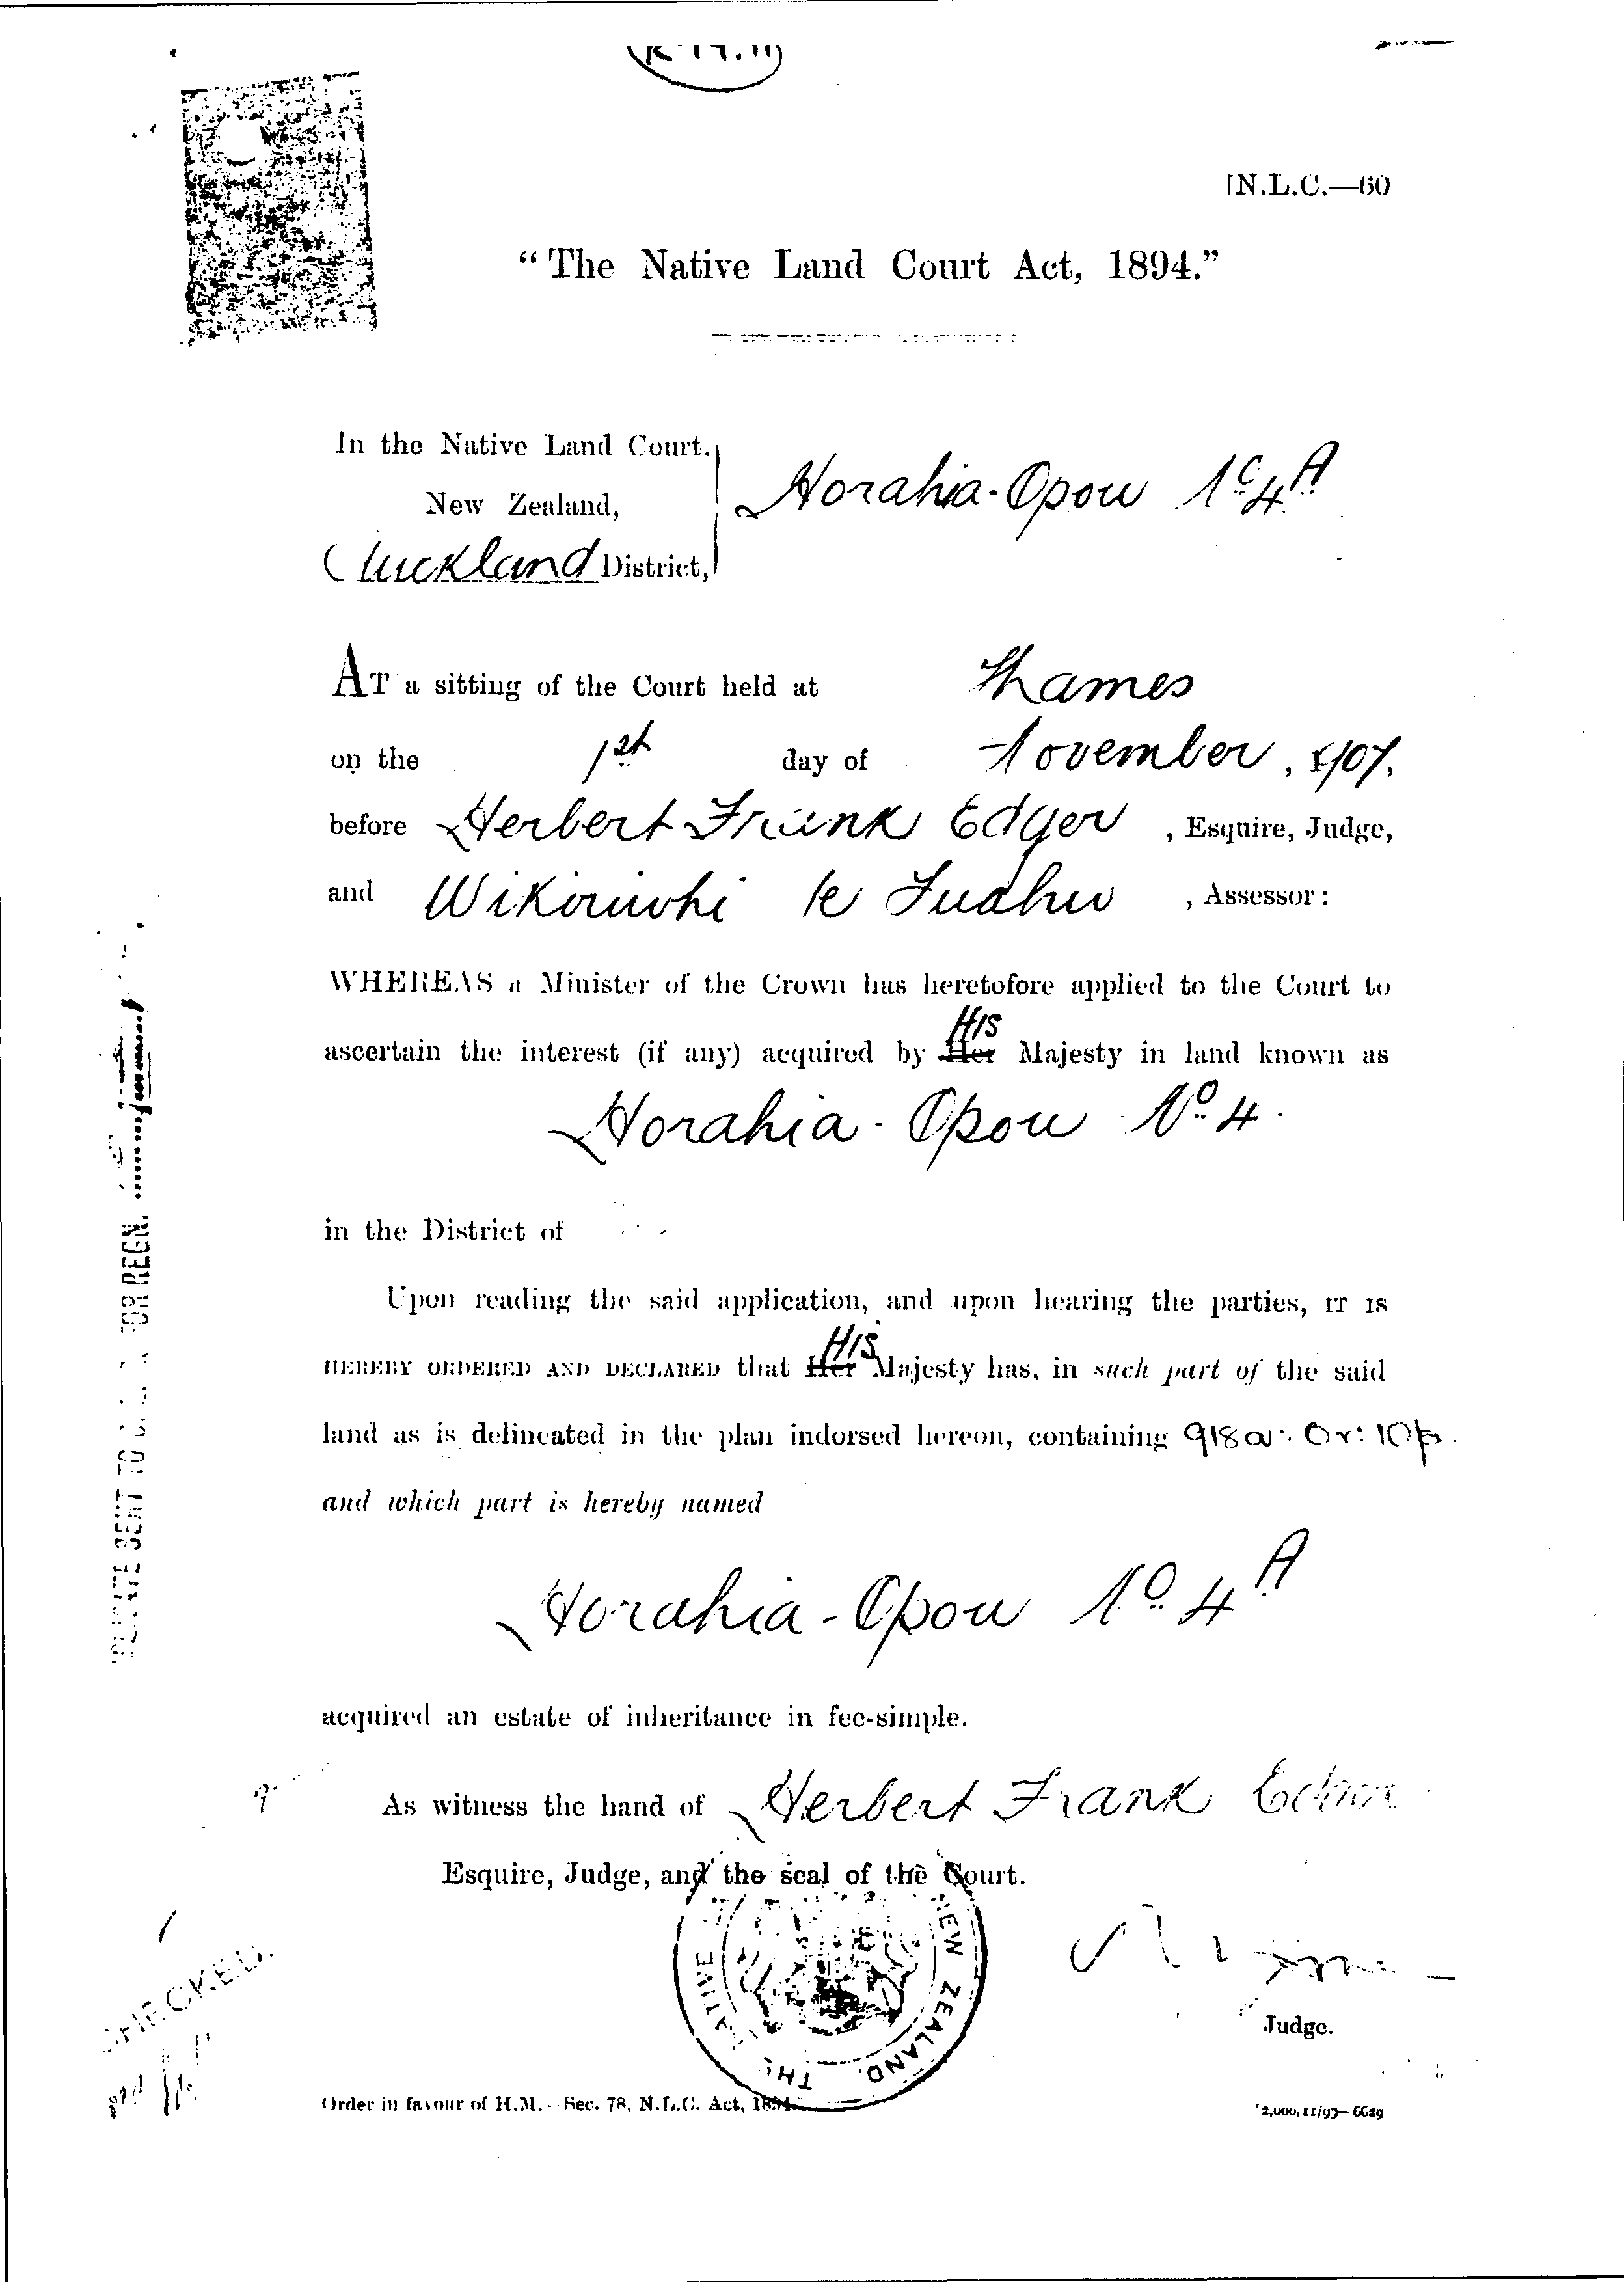 [N.L.C.—60
"The Native Land Court Act, 1894."
In the Native Land Court.
New Zealand,
Auckland District,
Horahia-Opou No 4A
AT a sitting of the Court held at Thames
on the 1st day of November, 1907.
before Herbert Frank Edger, Esquire, Judge,
and Wikiriwhi te Tuahu, Assessor:
WHEREAS a Minister of the Crown has heretofore applied to the Court to
His
ascertain the interest (if any) acquired by Her Majesty in land known as
Horahia-Opou No. 4.
in the District of
Upon reading the said application, and upon hearing the parties, IT IS
His
HEREBY ORDERED AND DECLARED that Her Majesty has, in such part of the said
land as is delineated in the plan indorsed hereon, containing 918a: 0r: 10p.
and which part is hereby named
Horahia-Opou No. 4A
acquired an estate of inheritance in fee-simple.
As witness the hand of Herbert Frank Edger
Esquire, Judge, and the seal of the Court.
THE NATIVE NEW ZEALAND.
Judge.
CHECKED.
Order in favour of H.M.—Sec. 78, N.L.C. Act, 1894
SENT TO FOR REGN.